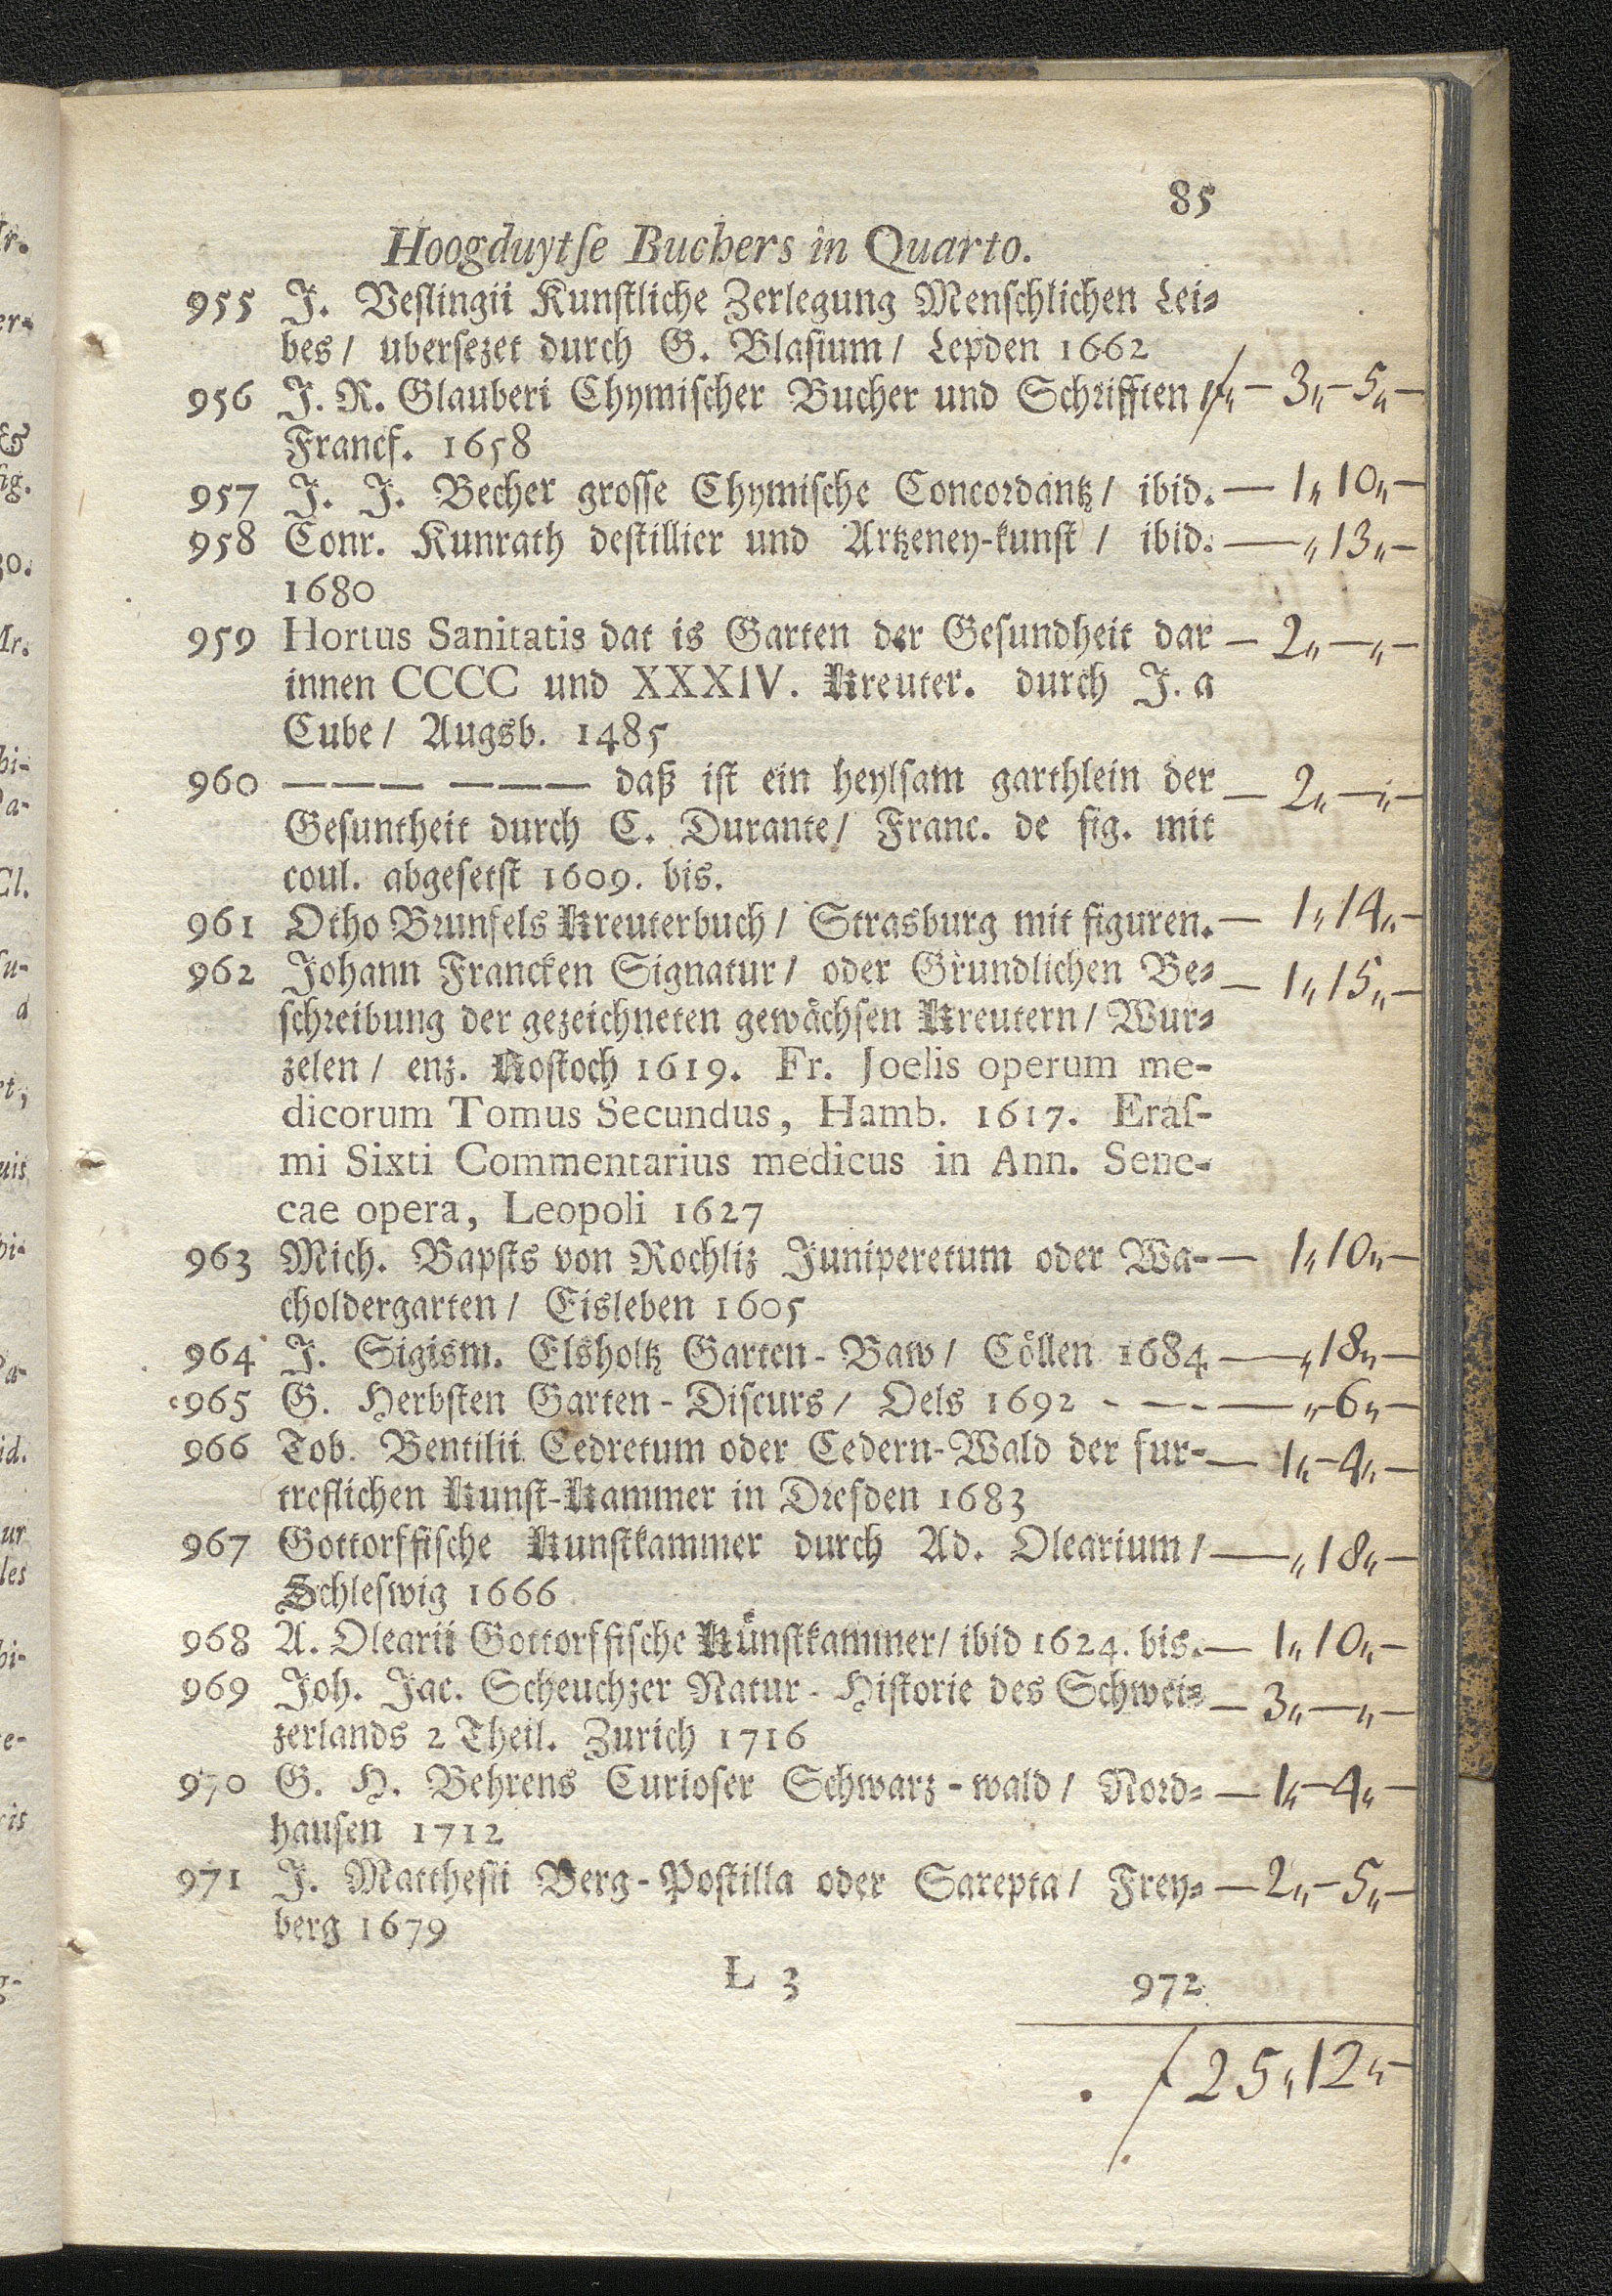 85
Hoogduytſe Buchers in Quarto.
955 J. Veslingii Kunstliche Zerlegung Menschlichen Lei-
bes / ubersezet durch G. Blasium / Leyden 1662
956 J. R. Glauberi Chymischer Bucher und Schrifften / ƒ„ — 3„ — 5„ —
Francf. 1658
957 J. J. Becher grosse Chymische Concordantz / ibid. — 1„ 10„ —
958 Conr. Kunrath destillier und Artzeney-kunst / ibid. — „ 13„ —
1680
959 Hortus Sanitatis dat is Garten der Gesundheit dar — 2„ — „ —
innen CCCC und XXXIV. Kreuter. durch J. a
Cube / Augsb. 1485
960 — — — — — — daß ist ein heylsam garthlein der — 2„ — „ —
Gesuntheit durch C. Durante / Franc. de fig. mit
coul. abgesetst 1609. bis.
961 Otho Brunfels Kreuterbuch / Strasburg mit figuren. — 1„ 14„ —
962 Johann Francken Signatur / oder Grundlichen Be- — 1„ 15„ —
schreibung der gezeichneten gewächsen Kreutern / Wur-
zelen / enz. Rostoch 1619. Fr. Joelis operum me-
dicorum Tomus Secundus, Hamb. 1617. Eraſ-
mi Sixti Commentarius medicus in Ann. Sene-
cae opera, Leopoli 1627
963 Mich. Bapsts von Rochliz Juniperetum oder Wa- — 1„ 10„ —
choldergarten / Eisleben 1605
964 J. Sigism. Elsholtz Garten-Baw / Cöllen 1684 — „ 18„ —
965 G. Herbsten Garten-Discurs / Oels 1692 - - - — „ 6„ —
966 Tob. Bentilii Cedretum oder Cedern-Wald der fur- — 1„ — 4„ —
treflichen Kunst-Kammer in Dresden 1683
967 Gottorffische Kunstkammer durch Ad. Olearium / — „ 18„ —
Schleswig 1666
968 A. Olearii Gottorffische Künstkammer / ibid 1624. bis. — 1„ 10„ —
969 Joh. Jac. Scheuchzer Natur-Historie des Schwei- — 3„ — „ —
zerlands 2 Theil. Zurich 1716
970 G. H. Behrens Curioser Schwarz-wald / Nord- — 1„ — 4„ —
hausen 1712
971 J. Matthesii Berg-Postilla oder Sarepta / Frey- — 2„ — 5„ —
berg 1679
L 3 972
ƒ 25„ 12„ —